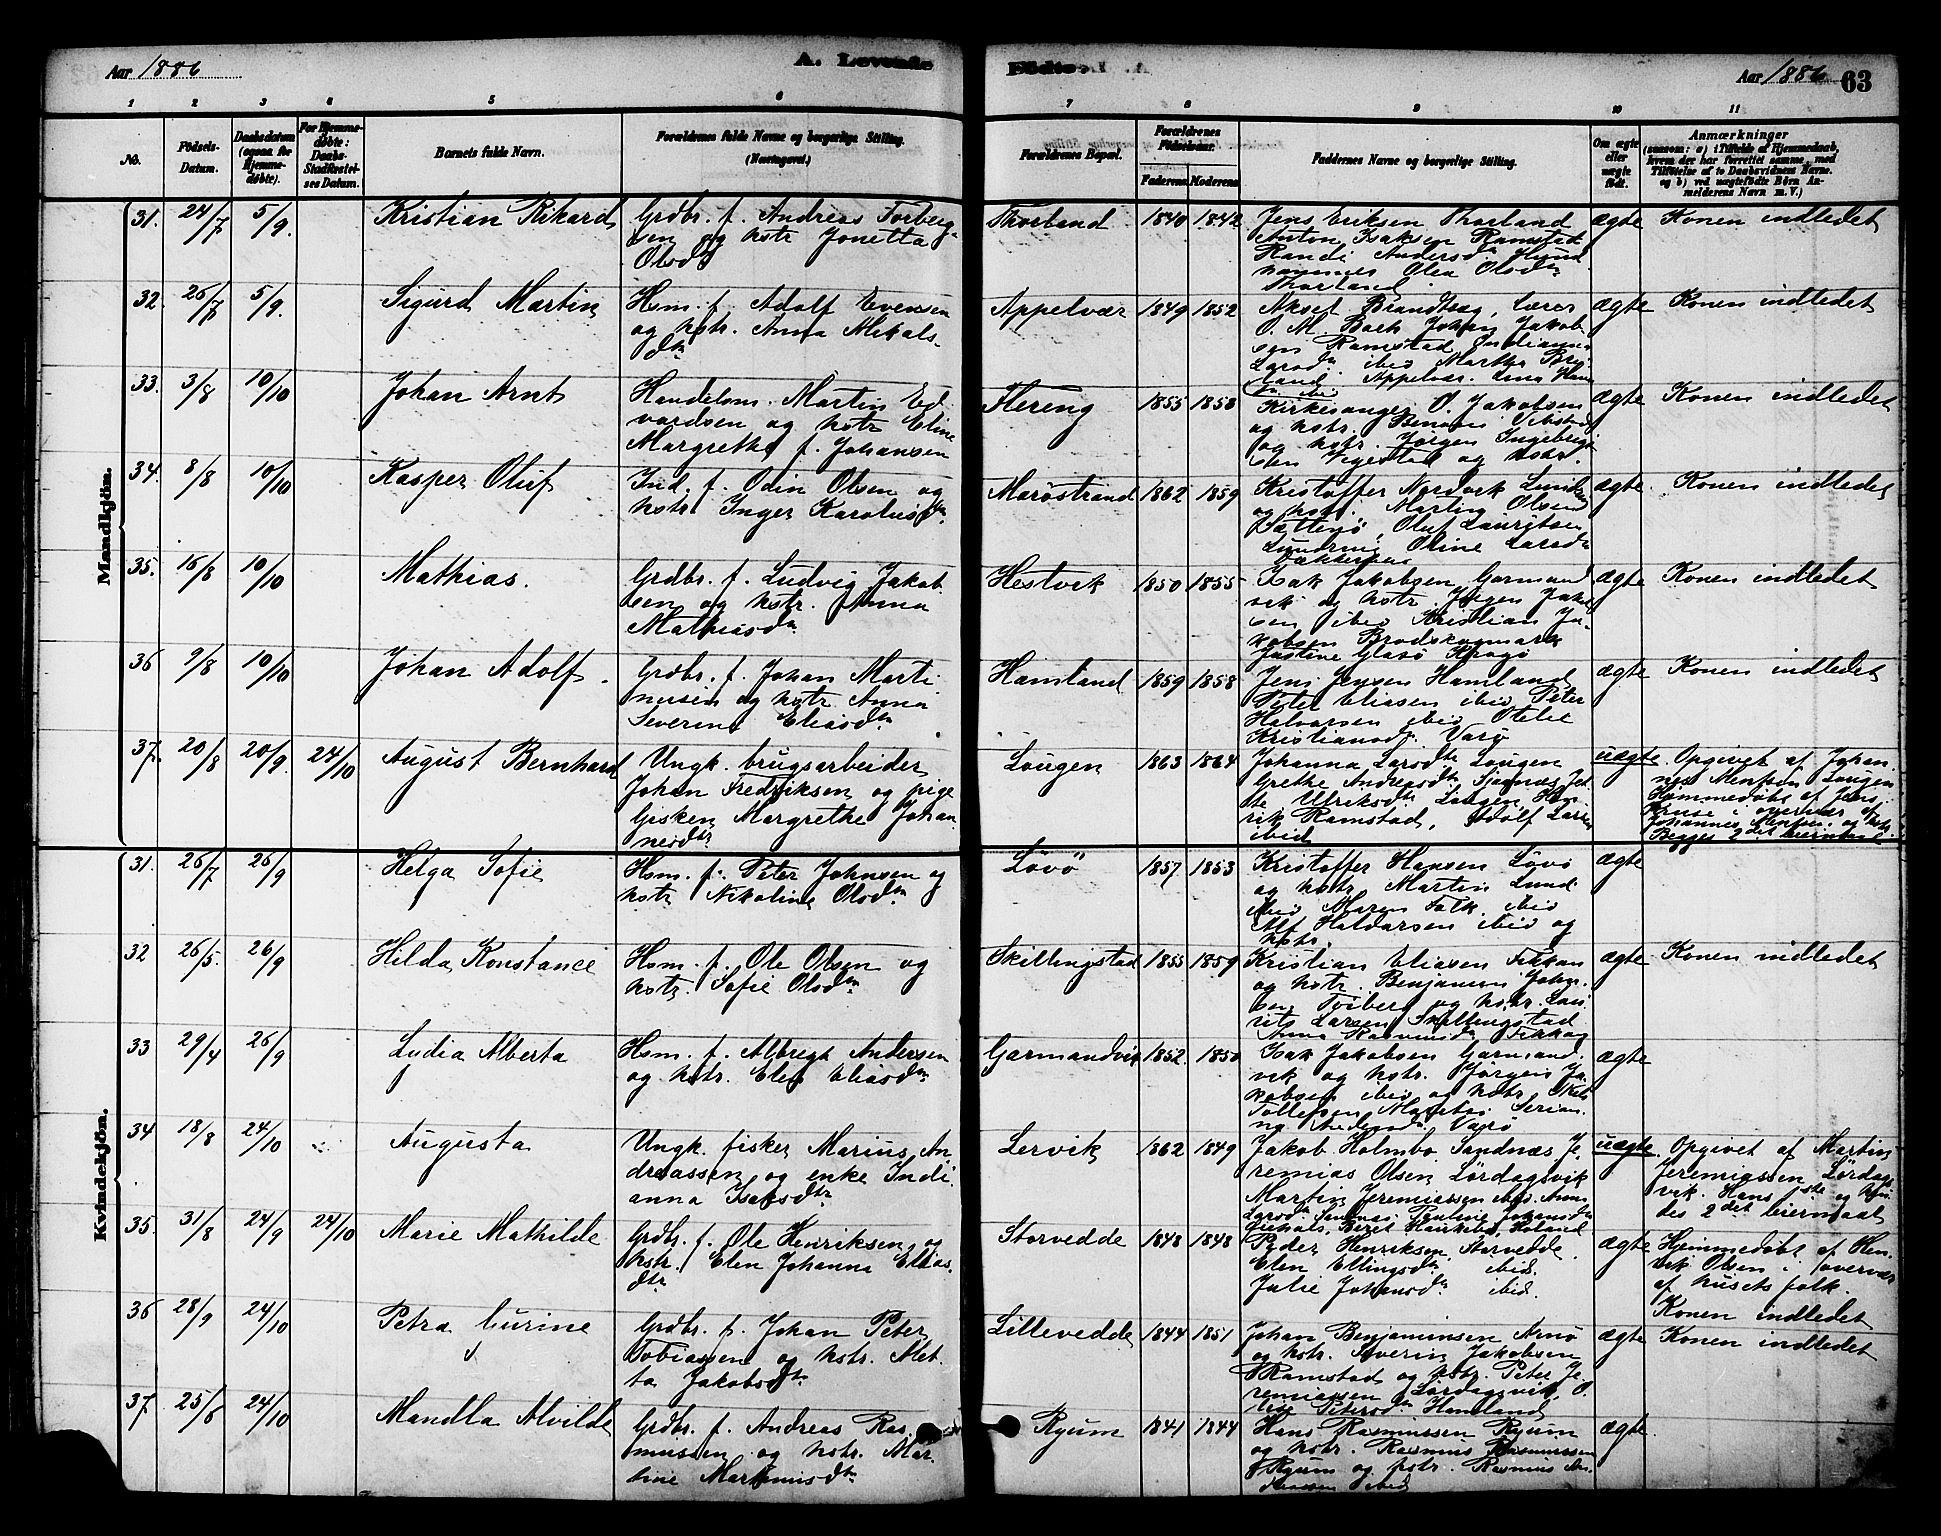 Aar 1886
A. Levende
Fødte.
Aar 1886
63
1 2 3 4 5 6 7 8 9 10 11
No.
Fødsels-
Datum.
Daabsdatum
(ogsaa for
Hjemme-
døbte).
For Hjemme-
døbte:
Daabs-
Stadfæstel-
ses Datum.
Barnets fulde Navn.
Forældrenes fulde Navne og borgerlige Stilling.
Forældrenes Bopæl.
Forældrenes
Fødselsaar.
Faderens Moderens
Faddernes Navne og borgerlige Stilling.
Om ægte
eller
uægte
født.
Anmærkninger
(saasom: a) i Tilfælde af Hjemmedaab,
hvem der har forrettet samme, med
Tilføielse af to Daabsvidners Navne.
og b) ved uægtefødte Børn An-
melderens Navn m. V.)
Mandkjön.
31. 24/7 5/9.
Kristian Rikard
Grdbr. f. Andreas Torberg-
sen og hstr Jonetta
Olsdtr
Thorland
1840 1842
Jens Eriksen Thorland
Anton Isaksen Ramstad
Randi Andersdtr
Olea Olsdtr
Thorland.
ægte
Konen indledet
32. 26/7 5/9.
Sigurd Martin
Hsm. f. Adolf Evensen
og hstr. Anna Mikals-
dtr
Appelvær
1849 1852
Aksel Brandtzæg, lærer
O. M. Bach Johan Jakob-
sen Ramstad
Larsdtr ibid Martha
Appelvær.
ægte
Konen indledet
33. 3/8 10/10
Johan Arnt
Handelsm. Martin Ed-
vardsen og hstr Eline
Margrethe f. Johansen
Flereng
1855 1858
Kirkesanger O. Jakobsen
og hstr.
og hstr. Jørgen Ingebrigt-
sen Vegestad og hstr.
ægte
Konen indledet
34. 8/8 10/10
Kasper Oluf
Ind. f. Odin Olsen og
hstr. Inger Karolusdtr
Marøstrand
1862 1859
Kristoffer Nordvik
og hstr. Martin Olsen
Oluf Lauritsen
Oline Larsdtr
ægte.
Konen indledet
35. 16/8 10/10
Mathias.
Grdbr. f. Ludvig Jakob
sen og hstr. Anna
Mathiasdtr
Hestvik
1850 1855
Isak Jakobsen Garmand
vik og hstr. Jørgen Jakob
sen ibid Kristian Ja-
kobsen
Justine Glasø
ægte
Konen indledet
36 9/8 10/10
Johan Adolf.
Grdbr. f. Johan Marti
nusen og hstr Anna
Severine Eliasdtr
Hamland
1859 1858
Jens Jensen Hamland
Peter Eliasen ibid Peter
Halvorsen ibid Otelie
Kristiansdtr Værø
ægte
Konen indledet
37. 20/8 20/9. 24/10
August Bernhard
Ungk. brugsarbeider
Johan Fredriksen og pige
Gisken Margrethe Johan
nesdtr
Lougen
1863 1864
Johanna Larsdtr Lougen
Grethe Andreasdtr
Ulriksdtr Lougen, Hen-
rik Ramstad, Adolf Larsen
ibid
uægte.
Opgivet af Johan
nes Lougen
Hjemmedøbt af Jens
Kruse i overvær af
Johannes og hstr.
Begges 2det leiermaal
Kvindekjön.
31. 26/7 26/9
Helga Sofie
Hsm. f. Peter Johnsen og
hstr Nikoline Olsdtr
Løvø
1857 1853
Kristoffer Hansen Løvø
og hstr Martin Lund
ibid Maren Falk ibid
Alf Halvorsen ibid og
hstr.
ægte
32 26/5. 26/9
Hilda Konstance
Hsm. f. Ole Olsen og
hstr. Sofie Olsdtr
Skillingstad
1855 1859
Kristian Eliasen Fikkan
og hstr. Benjamin Johan-
sen og hstr. Lau-
rits Larsen Skillingstad
Anna Rasmusdtr Fikkan
ægte
Konen indledet
33 29/4 26/9
Lydia Alberta
Hsm. f. Albregt Andersen
og hstr. Elen Eliasdtr
Garmandvik
1852 1850
Isak Jakobsen Garmand-
vik og hstr. Jørgen Ja-
kobsen ibid og hstr.
Tollefsen
Værø
ægte
34 18/8 24/10
Augusta
Ungk. fisker Marius An
dreassen og enke Indi
anna Isaksdtr
Lervik
1862 1849
Jakob Holmbo Sandnæs Je-
remias Olsen Lørdagsvik
Martin Jeremiassen ibid. Anna
Larsdtr Sandnæs Pauline Johansdtr
uægte.
Opgivet af Martin
Jeremiassen Lørdags
vik. Hans 1ste og hen
des 2det leiermaal
35. 31/8 24/9 24/10
Marie Mathilde
Grdbr. f. Ole Henriksen og
hstr. Elen Johanna Elias-
dtr
Storvedde
1848 1848
Peder Henriksen Storvedde.
Elen Ellingsdtr ibid.
Julie Johansdtr ibid.
ægte
Hjemmedøbt af Hen-
rik Olsen i overvær
af husets folk.
Konen indledet
36 28/9 24/10
Petra Gurine
Grdbr. f. Johan Peter
Tobiassen og hstr. Met-
ta Jakobsdtr
Lillevedde
1844 1851
Johan Benjaminsen Arnø
og hstr. Severin Jakobsen
Ramstad og hstr. Peter Je-
remiassen Lørdagsvik, O-
line Petersdtr Hamland
ægte
Konen indledet
37 25/6 24/10
Mandla Alvilde
Grdbr. f. Andreas Ras
mussen og hstr. Mar-
tine Martinusdtr
Ryum
1841 1844
Hans Rasmussen Ryum
og hstr. Rasmus Rasmussen
Ryum og hstr. Rasmus An-
dersen ibid
ægte.